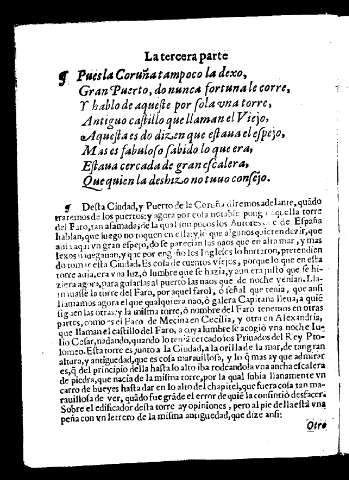 La tercera parte
¶ Pues la Coruña tampoco la dexo,
Gran Puerto, do nunca fortuna le corre,
Y hablo de aqueste por sola vna torre,
Antiguo castillo que llaman el Viejo,
Aquesta es do dizen que estaua el espejo,
Mas es fabuloso sabido lo que era,
Estaua cercada de gran escalera,
Que quien la deshizo no tuuo consejo.
¶ Desta Ciudad, y Puerto de la Coruña diremos adelante, quãdo
traremos de los puertos: y agora por cosa notable pongo aquella torre
del Faro, tan afamada, de la qual son pocos los Autores de España
hablan, que luego no toquen en ella: y lo que algunos quieren dezir, que
auia aqui vn gran espejo, do se parecian las naos que en alto mar, y mas
lexos nauegauan, y que por engaño los Ingleses lo hurtaron, pretendien
do tomar esta Ciudad. Es cosa de cuentos viejos, porque lo que en esta
torre auia, era vna luz, ò lumbre que se hazia, y aun era justo que se hi-
ziera agora, para guiar las al puerto las naos que de noche venian. Lla-
mauase la torre del Faro, por aquel farol, ò señal que tenia, que ansi
llamamos agora el que qualquiera nao, ò galera Capitana lleua, a quiẽ
siguen las otras: y la misma torre, ò nombre del Faro tenemos en otras
partes, como es el Faro de Mecina en Cecilia, y otra en Alexandria,
que llaman el castillo del Faro, a cuya lumbre se acogiò vna noche Iu-
lio Cesar, nadando, quando lo teniã cercado los Priuados del Rey Pto-
lomeo. Esta torre es junto a la Ciudad, a la orilla de la mar, de tan gran
altura, y antiguedad, que es cosa marauillosa, y lo q̃ mas ay que admirar
es, q̃ del principio della hasta lo alto iba rodeandola vna ancha escalera
de piedra, que nacia de la misma torre, por la qual subia llanamente vn
carro de bueyes hasta dar en lo alto del chapitel, que fuera cosa tan ma-
rauillosa de ver, quãdo fue grãde el error de quiẽ la consintiò desfazer.
Sobre el edificador desta torre ay opiniones, pero al pie della està vna
peña con vn letrero de la misma antiguedad, que dize ansi:
Otro